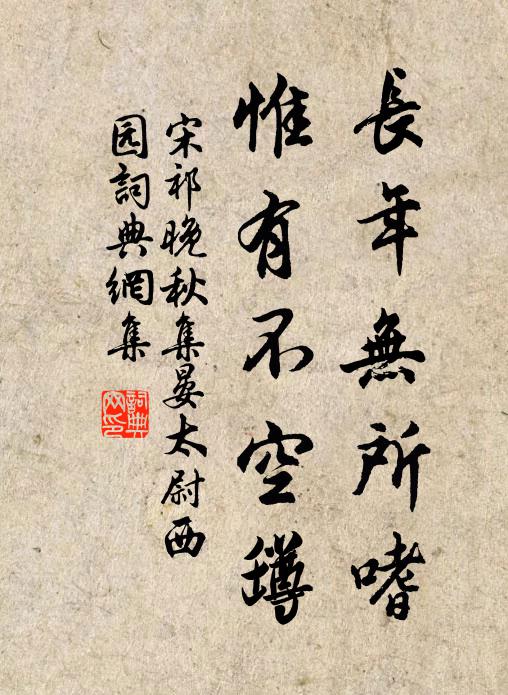 長年無所嗜
惟有不空罇
宋祁晚秋集晏太尉西
园詞典網集
詞典网印